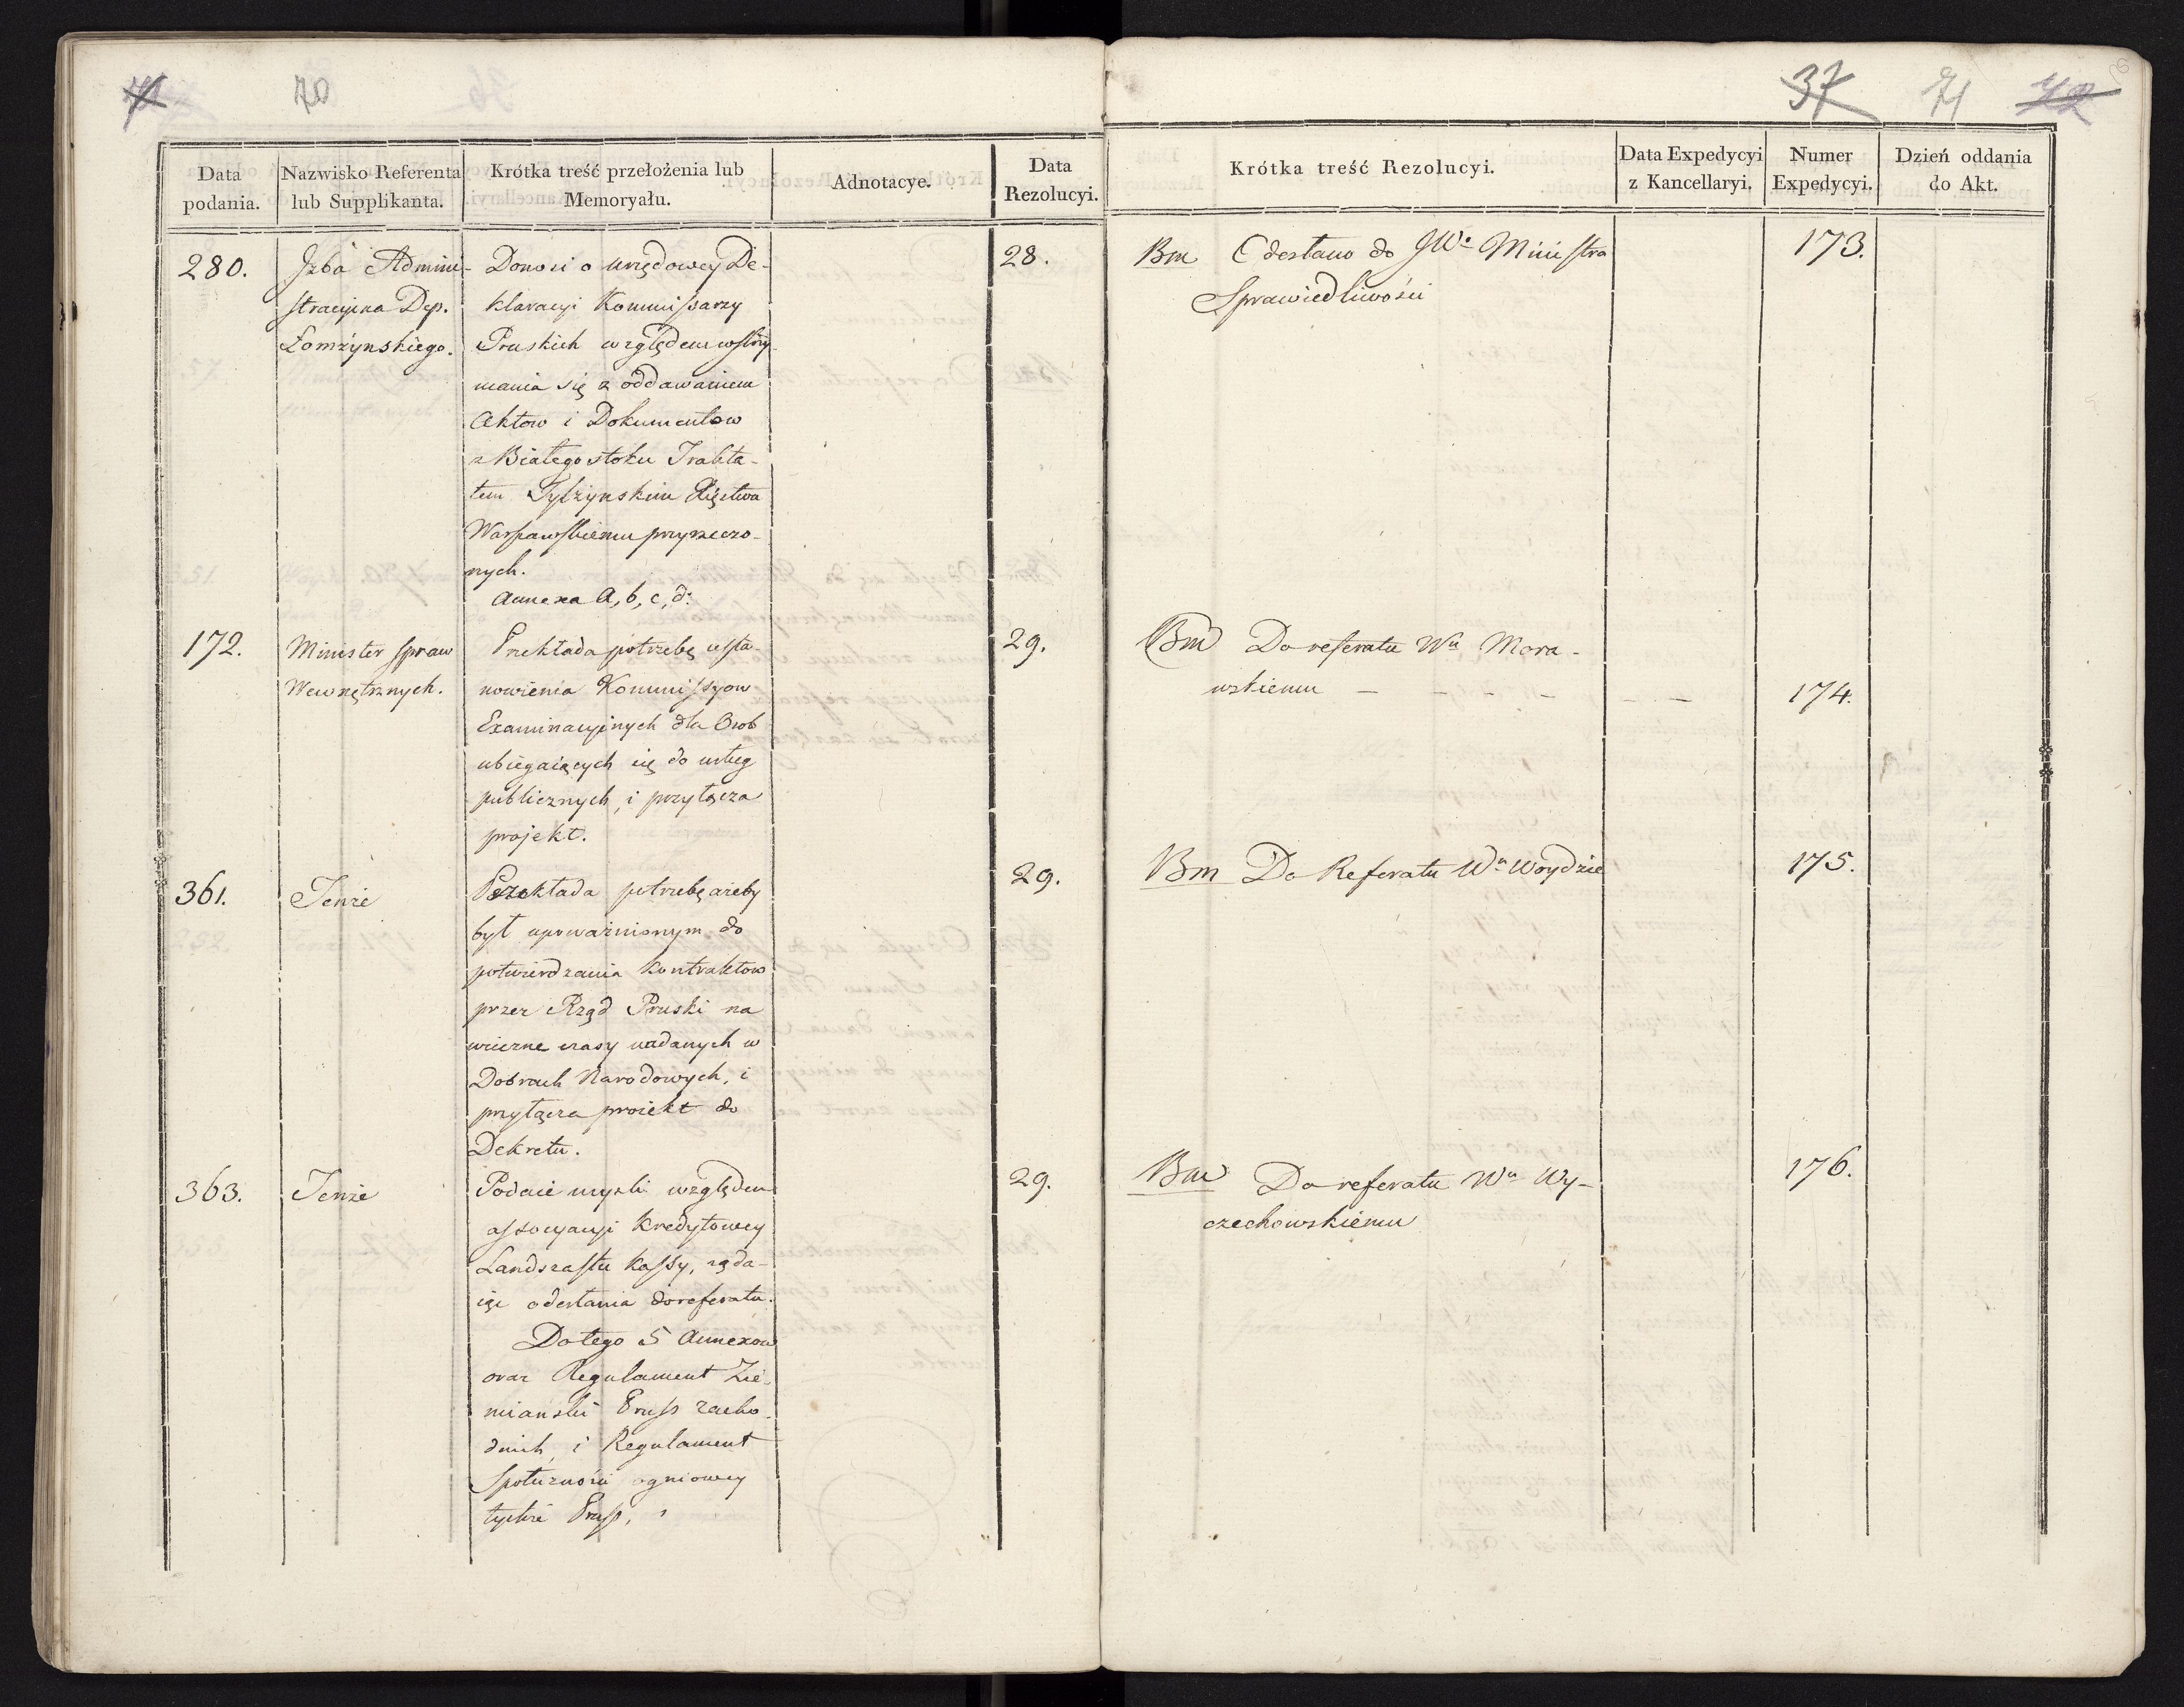 71
70
37
71
72
Data podania.
Nazwisko Referenta lub Supplikanta.
Krótka treść przełożenia lub Memoryału.
Adnotacye.
Data Rezolucyi.
Krótka treść Rezolucyi.
Data Expedycyi z Kancellaryi.
Numer Expedycyi.
Dzień oddania do Akt.
280.
Jzba Admini-
stracyina Dep.
Łomżynskiego.
Donosi o urzędowey De-
klaracyi Kommissarzy
Pruskich względem wstrzy-
mania się z oddawaniem
Aktow i Dokumentow
z Białegostoku Trakta-
tem Tylżynskim Xięstwa
Warszawskiemu przyrzeczo-
nych.
Annexa A, b, c, d:
28.
Bm Odesłano do JW° Ministra
Sprawiedliwości
173.
172.
Minister spraw
Wewnętrznych.
Przekłada potrzebę usta-
nowienia Kommissyow
Examinacyjnych dla Osob
ubiegaiących się do usług
publicznych, i przyłącza
projekt.
29.
Bm Do referatu Wu Mora-
wskiemu – – – – – –
174.
361.
Tenże
Przekłada potrzebę ażeby
był upoważnionym do
potwierdzania kontraktow
przez Rząd Pruski na
wieczne czasy nadanych w
Dobrach Narodowych, i
przyłącza proiekt do
Dekretu.
29.
Bm Do Referatu Wu Woydzie
175.
363.
Tenże
Podaie mysli względem
assocyacyi Kredytowey
Landszaftu Kassy, ząda-
iąc odesłania do referatu.
Do tego 5 Annexow
oraz Regulament Zie-
mianski Pruss zacho-
dnich, i Regulament
Społeczności ogniowey
tychże Pruss,
29.
Bm Do referatu Wu Wy-
czechowskiemu
176.